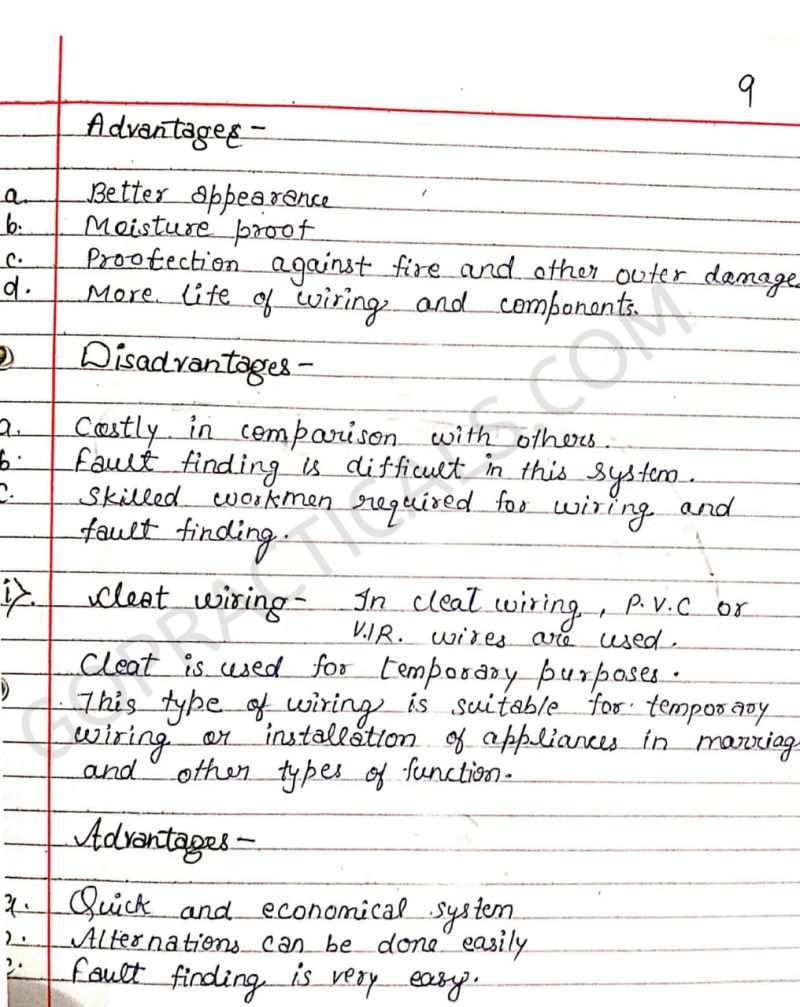 9
Advantages -
a. Better appearance
b. Moisture proof
c. Prootection against fire and other outer damage
d. More life of wiring and components.
Disadvantages -
a. Costly in comparison with others.
b. Fault finding is difficult in this system.
c. Skilled workmen required for wiring and
fault finding.
i>. Cleat wiring - In cleat wiring, P.V.C or
V.I.R. wires are used.
Cleat is used for temporary purposes.
This type of wiring is suitable for temporary
wiring or installation of appliances in marriag
and other types of function.
Advantages -
Quick and economical system
Alternations can be done easily
Fault finding is very easy.
GOPRACTICALS.COM